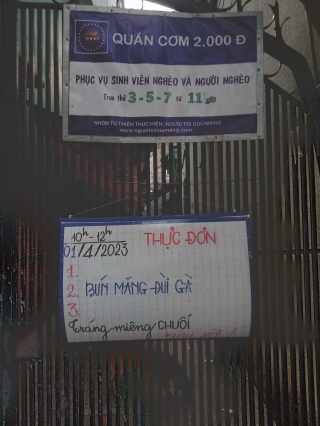 QUÁN CƠM 2.000 Đ
PHỤC VỤ SINH VIÊN NGHÈO VÀ NGƯỜI NGHÈO
Trưa thứ 3-5-7 từ 11 giờ
NHÓM TỪ THIỆN THỰC HIỆN: NGƯỜI TÔI CƯU MANG
www.nguoitoicuumang.com
10h-12h
01/4/2023 THỰC ĐƠN
1.
2. BÚN MĂNG ĐÙI GÀ
3.
Tráng miệng CHUỐI